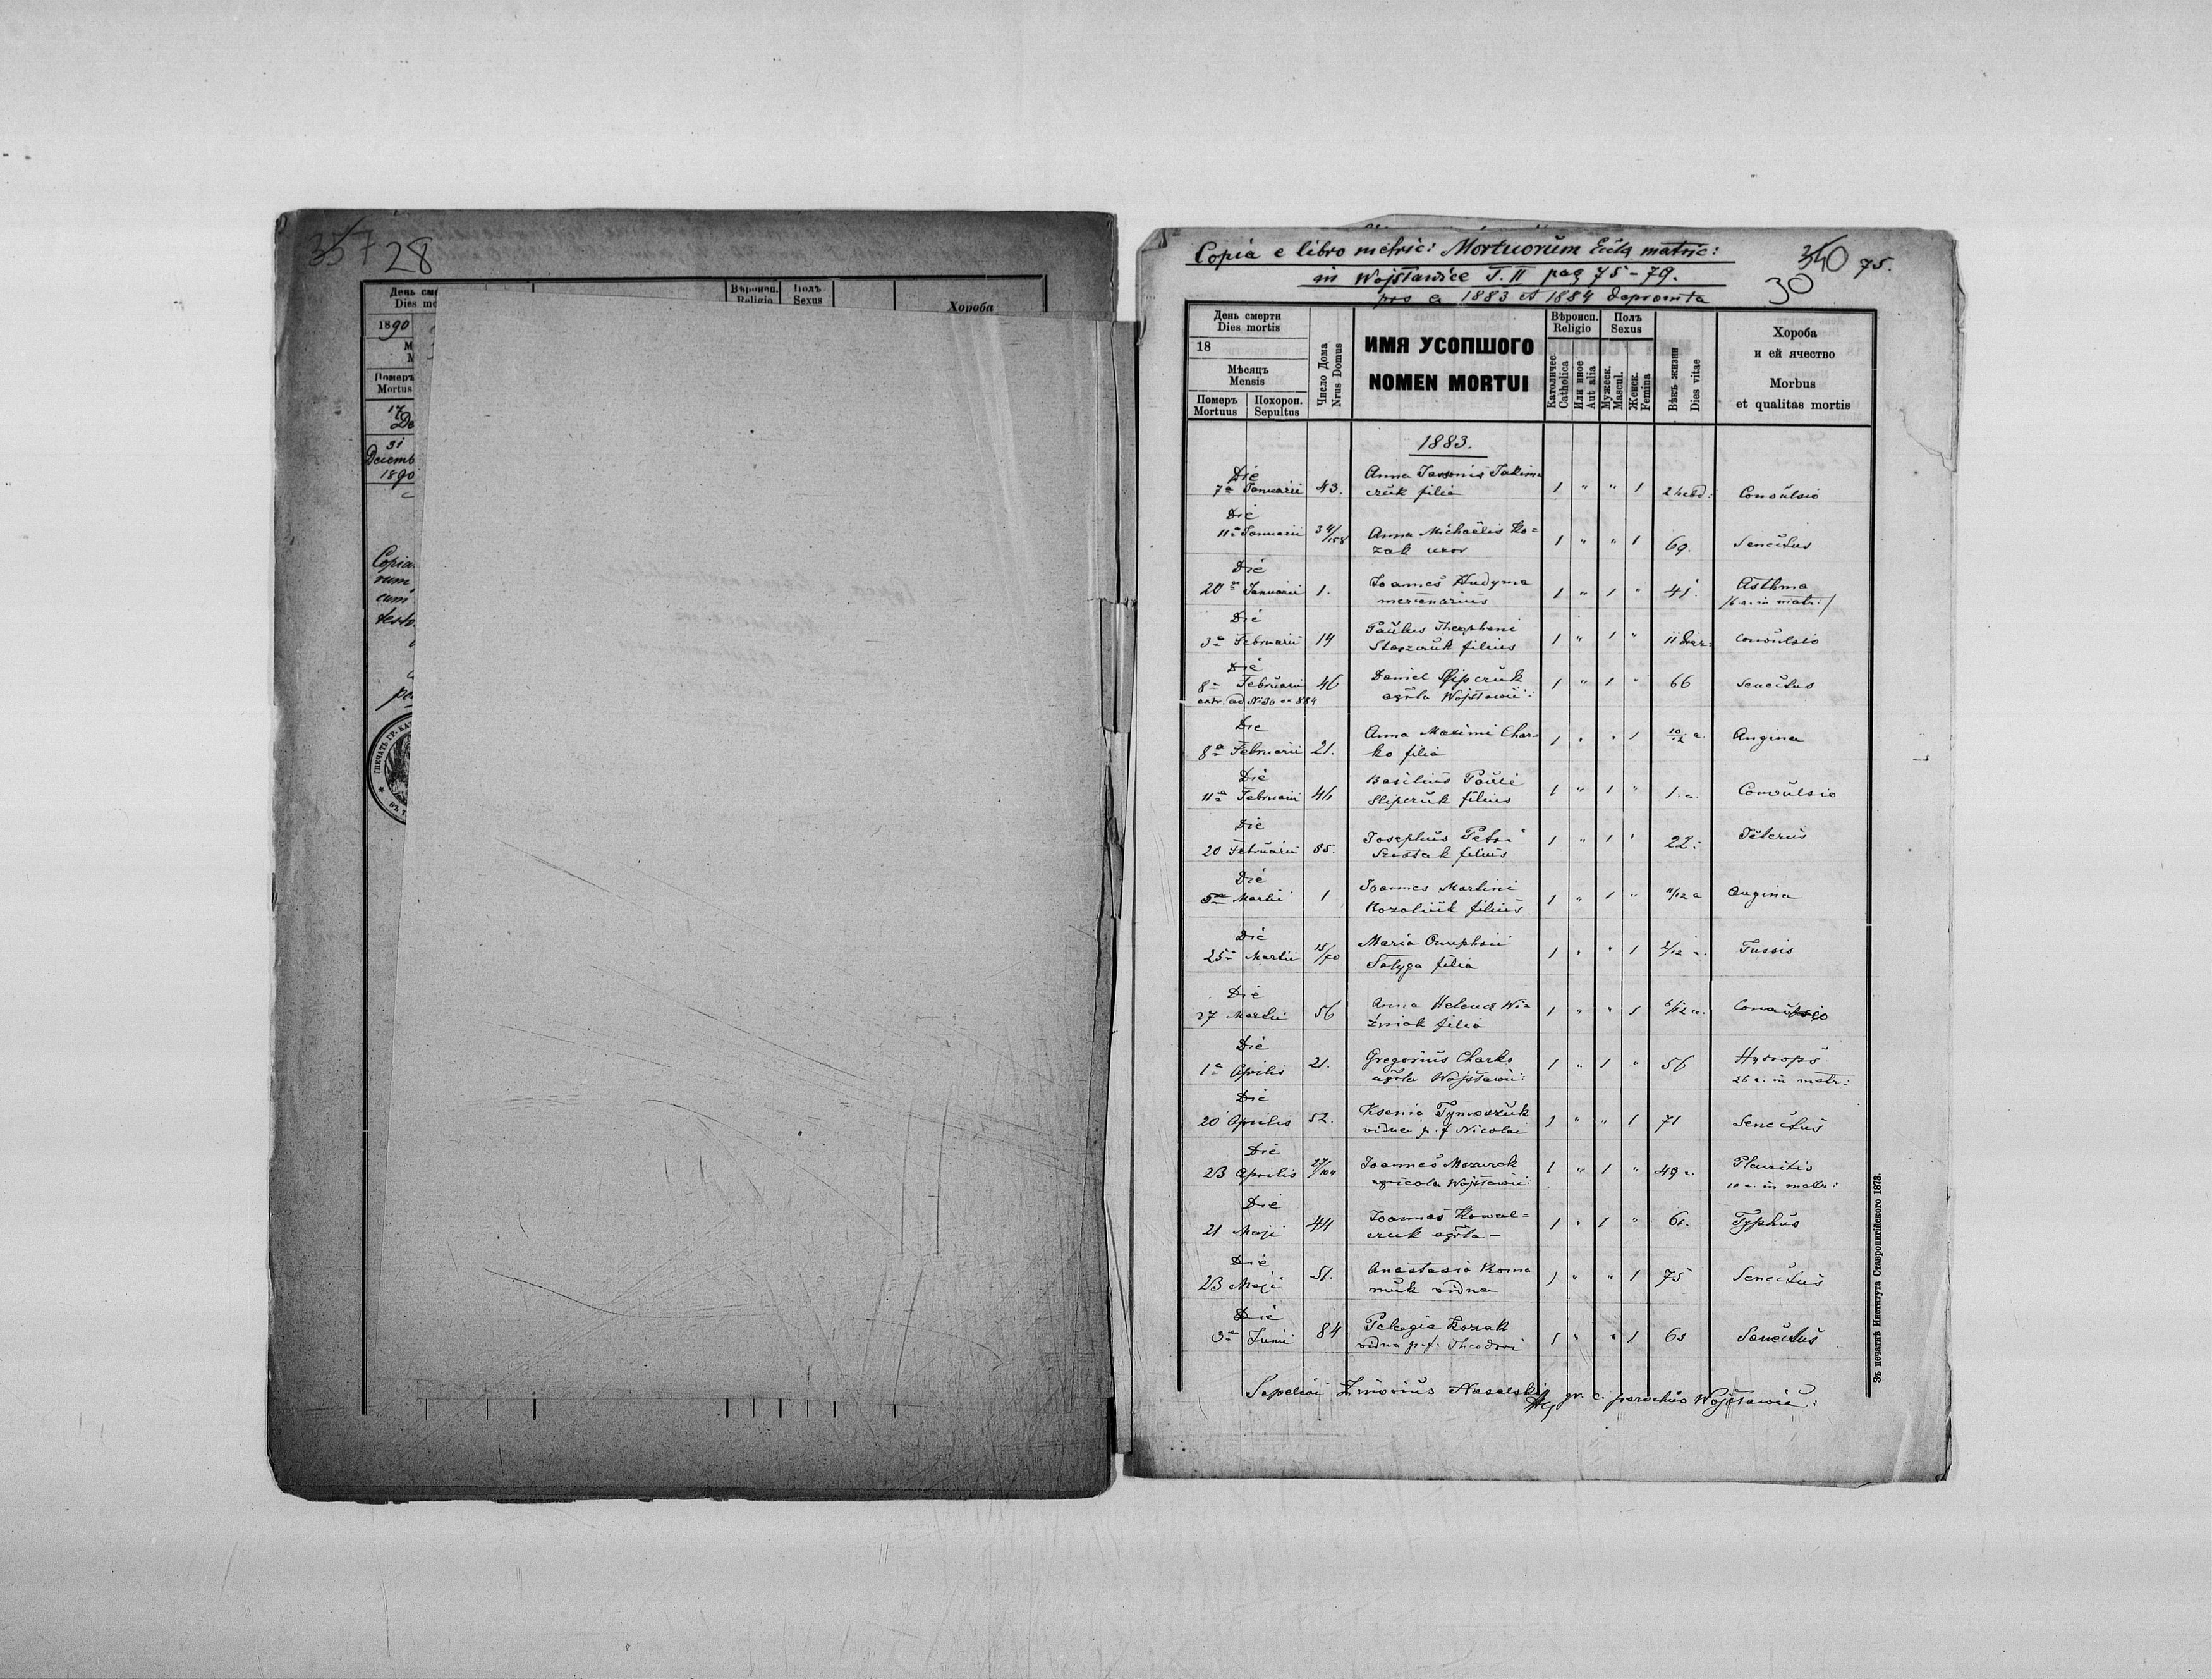 357 28
День сме
Dies mo
Вѣроисп.
Religio
Полъ
Sexus
Хороба
1890
Померъ
Mortus
17
De
31
Decemb
1890
Copia
rum
cum
testo
Copia e libro metric: Mortuorum Eccla matric:
in Wojsławice T. II pag 75-79.
pro a 1883 et 1884 depromta
340 75.
30
День смерти
Dies mortis
18
Мѣсяцъ
Mensis
Померъ
Mortuus
Похорон.
Sepultus
Число Дома
Nrus Domus
ИМЯ УСОПШОГО
NOMEN MORTUI
Вѣроисп.
Religio
Католичес.
Catholica
Или иное
Aut alia
Полъ
Sexus
Мужеск.
Mascul.
Женск.
Femina
Вѣкъ жизни
Dies vitae
Хороба
и ей ячество
Morbus
et qualitas mortis
1883.
Die Anna Jakim
7a Januarii 43. czuk filia 1 " " 1 2 hebd: Convulsio
Die
11a Januarii 34/158 Anna Michaëlis Ko= 1 " " 1 69. Senectus
zak uxor
Die
20a Januarii 1. Joannes Hudyma 1 " 1 " 41 Asthma
mercenarius /6 a. in matr:/
Die
3a Februarii 14 Paulus Theophani 1 " 1 " 11 dier: Convulsio
Staszczuk filius
Die
8a Februarii 46 Daniel Slipczuk 1 " 1 " 66 Senectus
extr. ad N 30 ex 884 agrla Wojsławic:
Die
8a Februarii 21. Anna Maximi Char= 1 " " 1 10/12 a. Angina
ko filia
Die
11a Februarii 46 Basilius Pauli 1 " 1 " 1. a. Convulsio
Slipczuk filius
Die
20 Februarii 85. Josephus Petri 1 " 1 " 22: Icterus
Szostak filius
Die
5a Martii 1 Joannes Martini 1 " 1 " 11/12 a Angina
Kozaliuk filius
Die
25a Martii 15/70 Maria Onuphrii 1 " " 1 2/12 a. Tussis
Sałyga filia
Die
27 Martii 56 Anna Helenae Wo= 1 " " 1 6/12 a. Convulsio
źniak filia
Die
1a Aprilis 21. Gregorius Charko 1 " 1 " 56 Hydrops
agrla Wojsławic: 26 a. in matr:
Die
20 Aprilis 52. Ksenia Tymoszuk 1 " " 1 71 Senectus
vidua p.f Nicolai
Die
23 Aprilis 27/104 Joannes Mazurak 1 " 1 " 49 a. Pleuritis
agricola Wojsławic: 10 a. in matr:
Die
21 Maji 44 Joannes Kowal= 1 " 1 " 61. Typhus
czuk agrla -
Die
23 Maji 51. Anastasia Roma 1 " " 1 75 Senectus
niuk vidua
Die
3a Junii 84 Pelagia Kozak 1 " " 1 63 Senectus
vidua p.f. Theodori
Sepelivi gr. c. parochus Wojsławic:
Зъ печатнѣ Института Ставропигійского 1873.